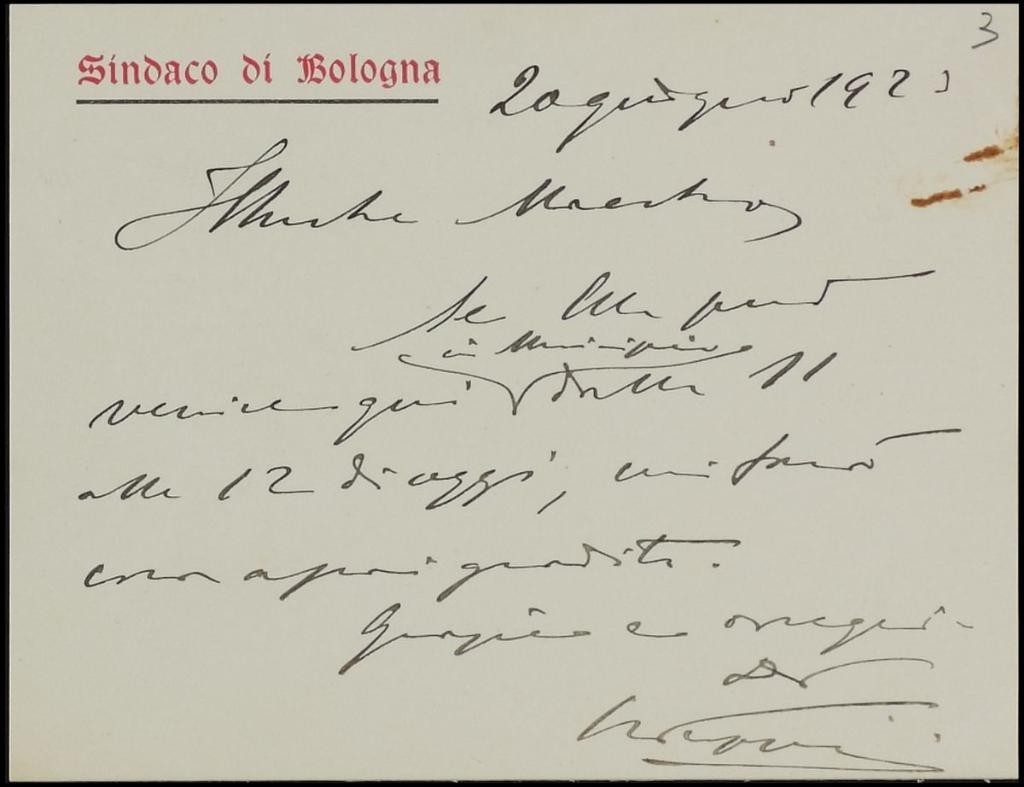 3
Sindaco di Bologna
20 giugno 1923
Illustre Maestro,
Se Ella può
in Municipio
venire qui dalle 11
alle 12 di oggi, mi farà
cosa assai gradita.
Grazie e ossequi.